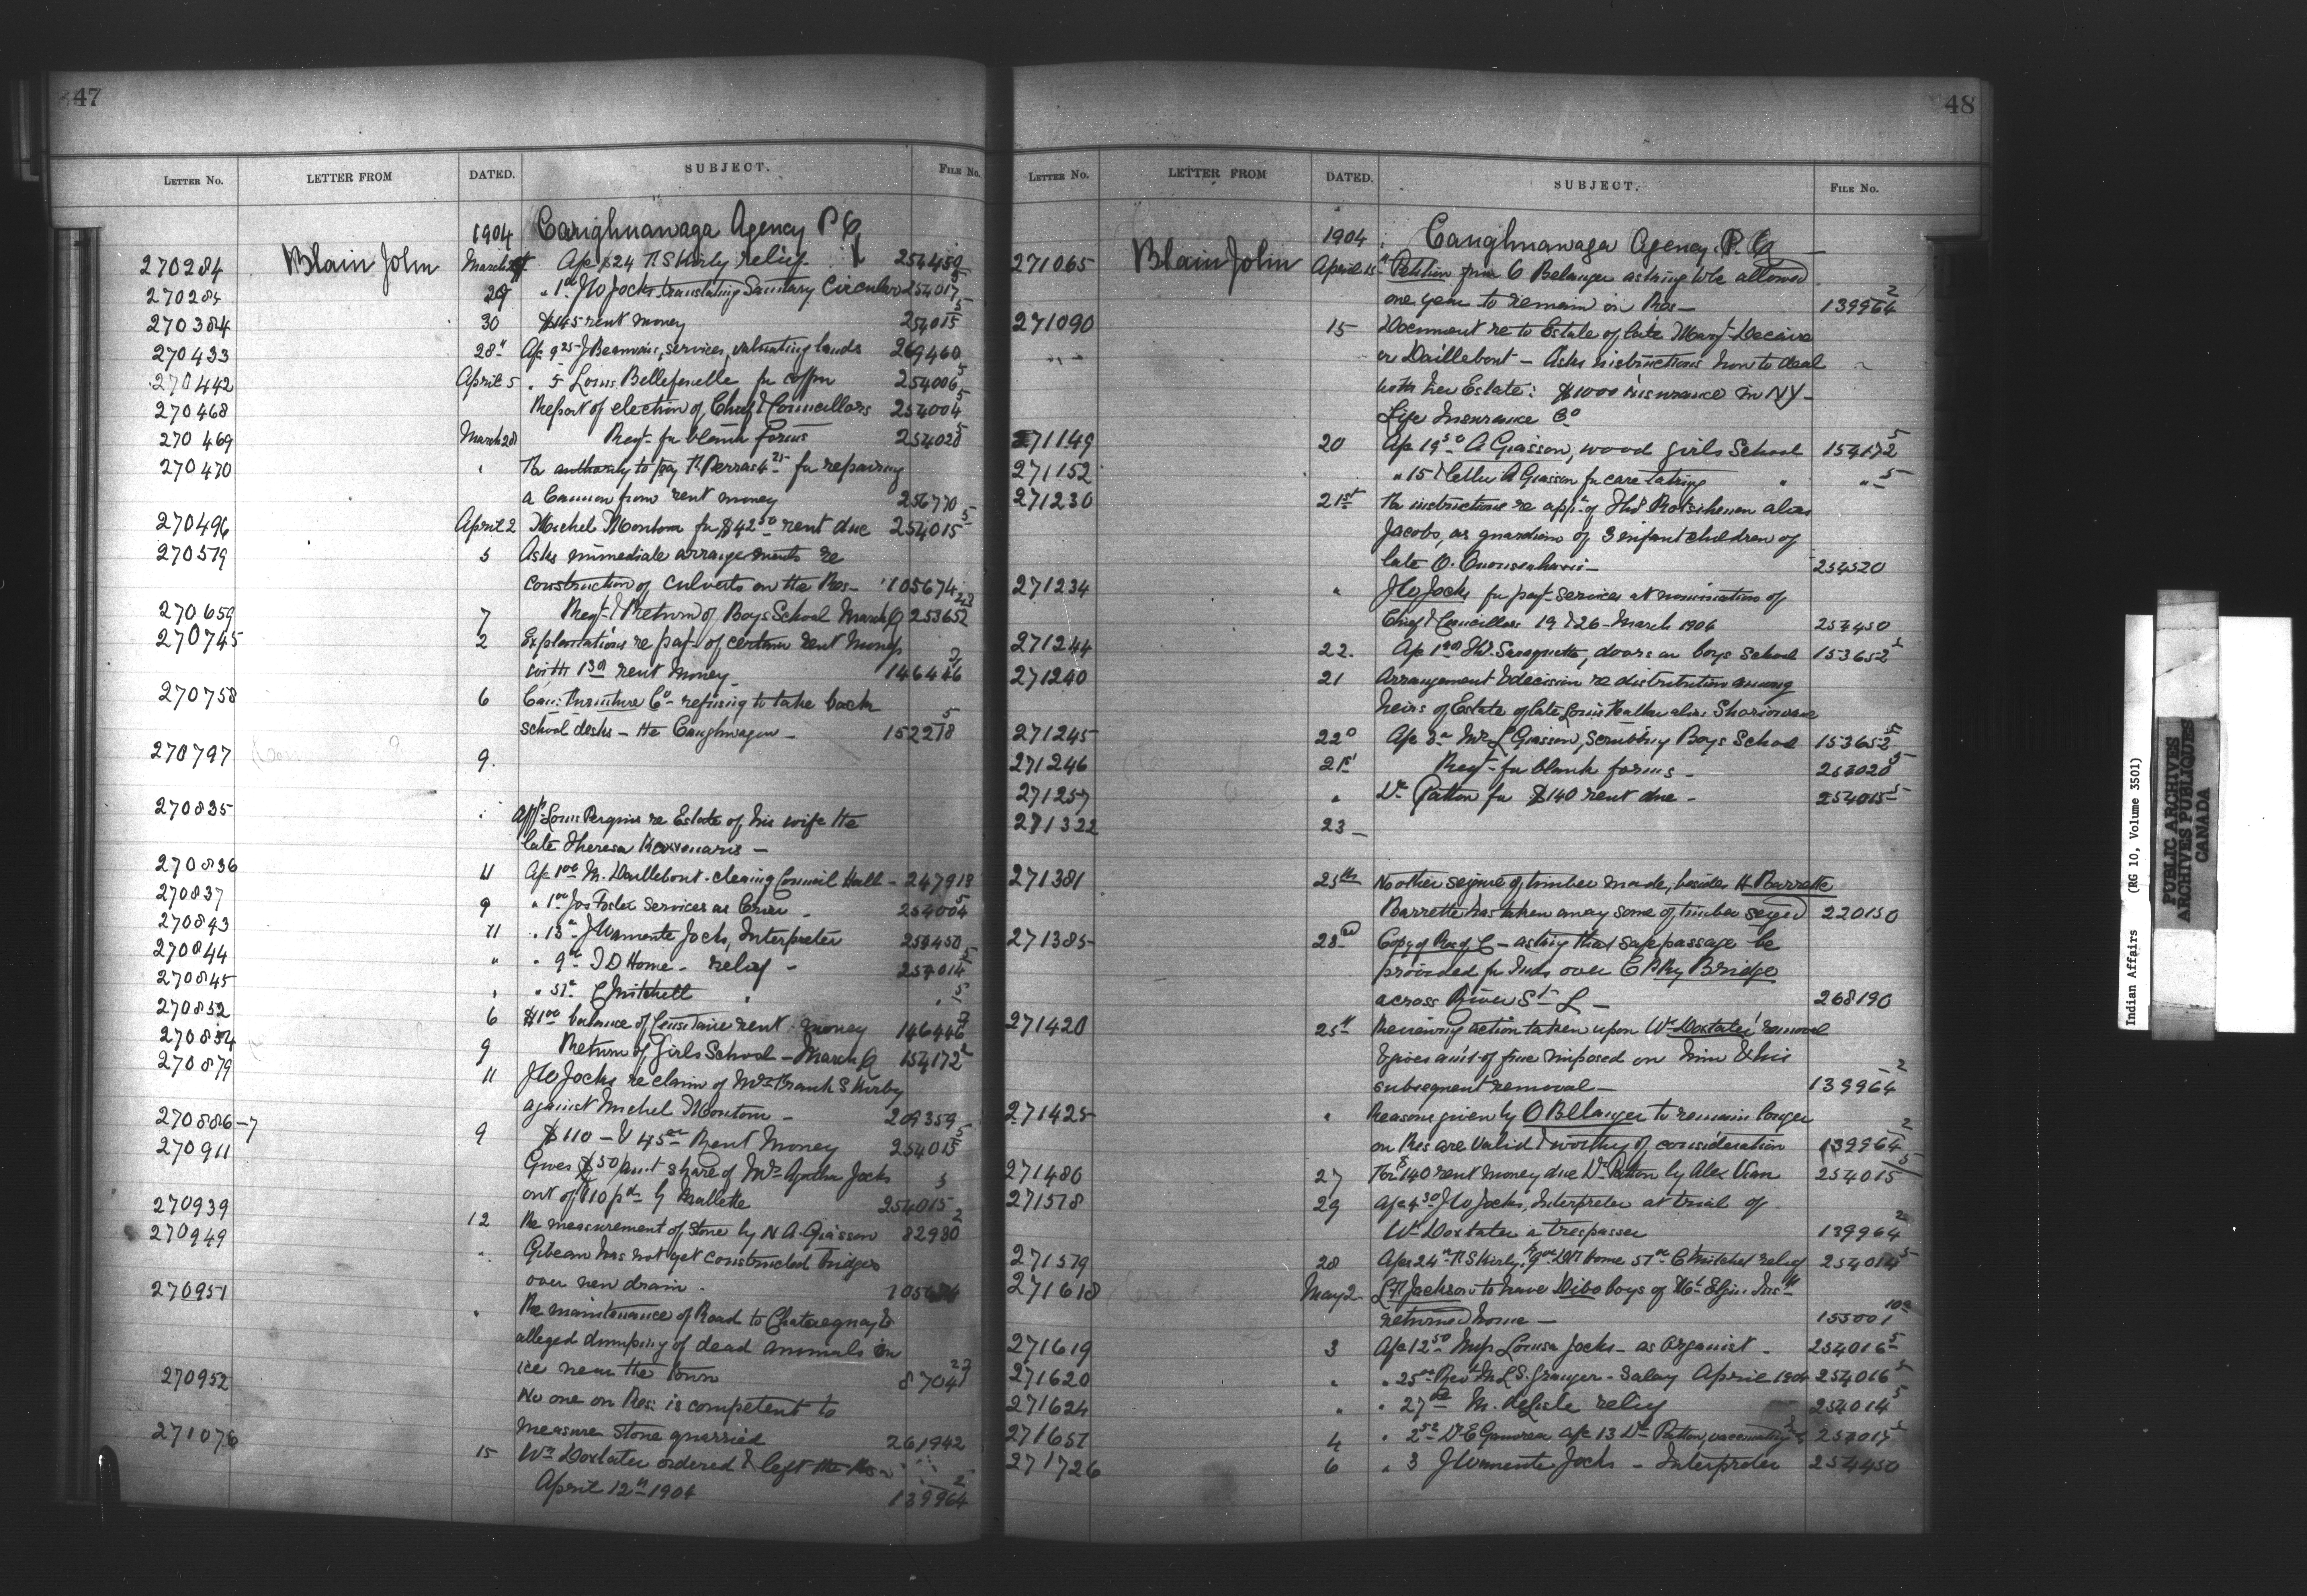 47
LETTER No. LETTER FROM DATED. SUBJECT. FILE No.
1904 Caughnawaga Agency P Q
270284 Blain John March Ap $24 relief 254450
270284 29 " J W Jocks translating Sanitary Circular 254017 5
270384 30 $145 rent money 254015 5
270433 28" Ap 9 25 J Beauvais, services, valuating lands 269460
270442 April 5 " 5 Louis Bellefeuille for coffin 254006 5
270468 Report of election of Chief & Councillors 254004 5
270469 March 28 Reqt for blank forms 254020 5
270470 " Re authority to pay Perras 4 25 for repairing
a Cannon from rent money 256770
270496 April 2 Michel Montour for $42 50 rent due 254015 5
270579 5 Asks immediate arrangements re
construction of culverts on the Res- 105674
270659 7 Reqt & Return of Boys School March Q 253652
270745 2 Explanations re payt of certain rent moneys
with rent money 146446 2
270758 6 Can: Furniture Co refusing to take back
school desks - the Caughnwagon - 152278 5
270797 9.
270835 " Appl Louis Perquis re Estate of his wife the
late Theresa -
270836 11 Ap 1 00 M. Daillebout - cleaning Council Hall - 247918
270837 9 " 1 00 Jos Foster Services as Crier - 254004 5
270843 11 " 13 J Wamente Jocks, Interpreter 254450
270844 " " 9 J D Home - relief - 254014 5
270845 " " 51 C Mitchell " " 5
270852 6 $1 00 balance of Censitaire rent money 146446 2
270854 9 Return of Girls School - March Q 154172 2
270879 11 J W Jocks re claim of Mrs Frank S Kirby
against Michel Montour - 209359
270886-7 9 $110 - & 45 Rent Money 254015 5
270911 Gives $50 amt share of Mrs Agatha Jocks
out of $110 pd by Mallette 254015 5
270939 12 Re measurement of Stone by N A Giasson 82980 2
270949 " Gibeau has not yet constructed bridges
over new drain. 105674
270951 " Re maintenance of Road to Chateaugnay &
alleged dumping of dead animals on
ice near the town 87047
270952 No one on Res: is competent to
measure stone quarried 261942
271076 15 Wm Doxtater ordered & left the Res
April 12th 1904 139964 2
48
LETTER No. LETTER FROM DATED. SUBJECT. FILE No.
1904 Caughnawaga Agency. P. Q
271065 Blain John April 15 Petition from O Belanger asking to be allowed
one year to remain on Res - 139964 2
271090 15 Document re to Estate of late Mary
or Daillebout - Asks instructions how to deal
with her Estate: $1000 insurance in NY -
Life Insurance Co
271149 20 Ap 19 50 A Giasson, wood girls School 154172 5
271152 " 15 A Giasson for care taking " " 5
271230 21st Re instructions re appln of alias
Jacobs, as guardian of 3 infant children of
late O. 254520
271234 " J W Jocks for payt services at nomination of
Chief & Councillors 19 & 26 - March 1904 254450
271244 22. Ap doors on boys School 153652 5
271240 21 Arrangement & decision re distribution among
heirs of Estate of late Louis alias
271245 22d Ap Mrs L Giasson, Scrubbing Boys School 153652 5
271246 21st Reqt for blank forms - 254020 5
271257 " Dr Patton for $140 rent due - 254015 5
271322 23 -
271381 25th No other seizure of timber made, besides H Barrette
Barrette has taken away some of timber seized 220130
271385 23rd Copy of Res of C - asking that safe passage be
provided for Inds over C P Ry Bridge
across River St L - 268190
271420 25th Reviewing action taken upon Wm Doxtater removal
& gives amt of fine imposed on him & his
subsequent removal - 139964 2
271425 " Reasons given by O Bellanger to remain longer
on Res are valid & worthy of consideration 139964 2
271486 27 For $140 rent money due Dr Patton by Alex 254015 5
271578 29 Ap 4 50 J W Jocks, Interpreter at trial of
Wm Doxtater a trespasser 139964 2
271579 28 Ap 24 Kirby, 9 Home 51 C Mitchel relief 254014 5
271618 May 2 Jackson to have Dibo boys of Mt Elgin Inst
returned home - 155001 10a
271619 3 Ap 12 50 Miss Louisa Jocks - as organist - 254016 5
271620 " " 25 Revd M L S. Granger - Salary April 1904 254016 5
271624 " " 27 M. deLisle relief 254014 5
271651 4 " 2 52 Ap 13 Dr Patton, vaccinating 254017 5
271726 6 " 3 J Wamente Jocks - Interpreter 254450
Indian Affairs (RG 10, Volume 3501)
PUBLIC ARCHIVES
ARCHIVES PUBLIQUES
CANADA